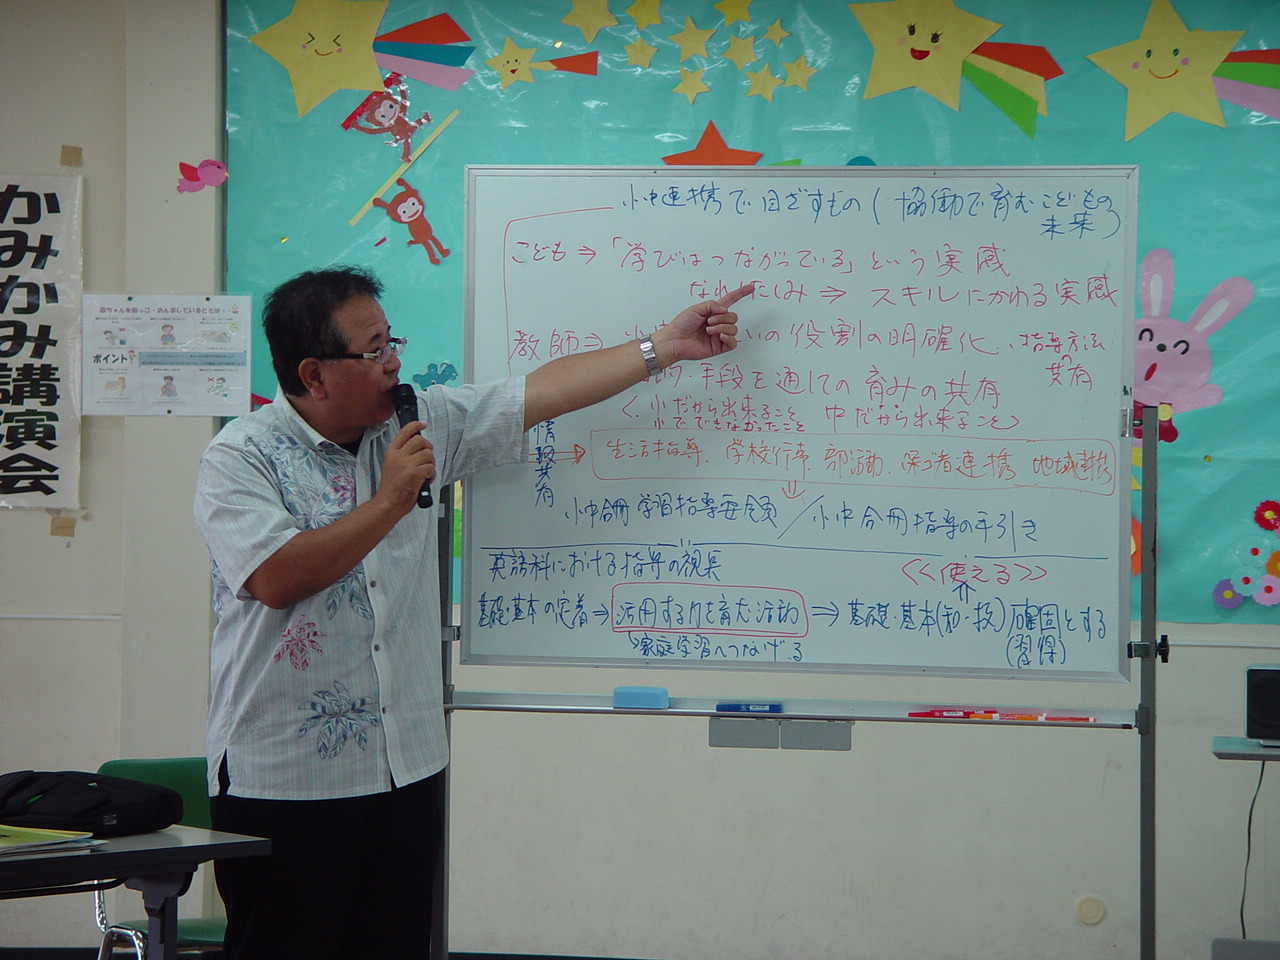 かみかみ講演会
ポイント
小中連携で目ざすもの(協働で育むこどもの未来)
こども⇒「学びはつながっている」という実感
たしみ⇒スキルにかわる実感
教師⇒
いの役割の明確化、指導方法の共有
手段を通しての育みの共有
〈小だから出来ること 中だから出来ること〉
小でできなかったこと
情報共有
生活指導、学校行事、部活動、保ゴ者連携、地域連携
小中合冊学習指導要領/小中合冊指導の手引き
英語科における指導の視点
≪使える≫
基礎・基本の定着⇒活用する力を育む活動⇒基礎・基本(知・技)確固とする
(習得)
家庭学習へつなげる